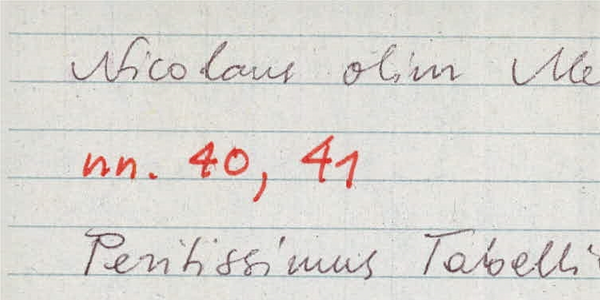 Nicolaus olim Me
nn. 40, 41
Peritissimus Tabelli